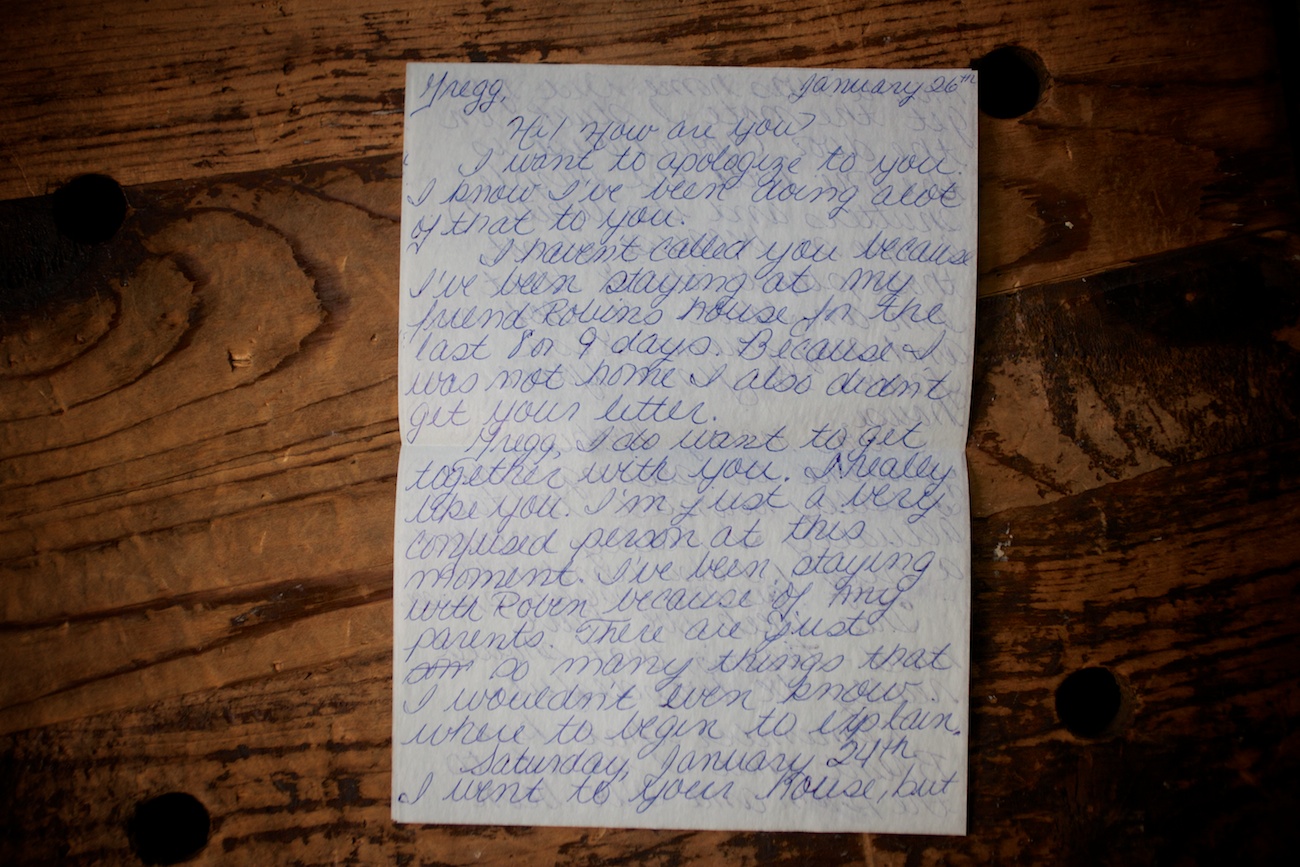 Gregg, January 26th
Hi! How are you?
I want to apologize to you.
I know I've been doing alot
of that to you.
I haven't called you because
I've been staying at my
friend Robins house for the
last 8 or 9 days. Because I
was not home I also didn't
get your letter.
Gregg, I do want to get
together with you. I really
like you. I'm just a very
confused person at this
moment. I've been staying
with Robin because of my
parents. There are just
so many things that
I wouldn't even know
where to begin to explain.
Saturday, January 24th
I went to your house, but